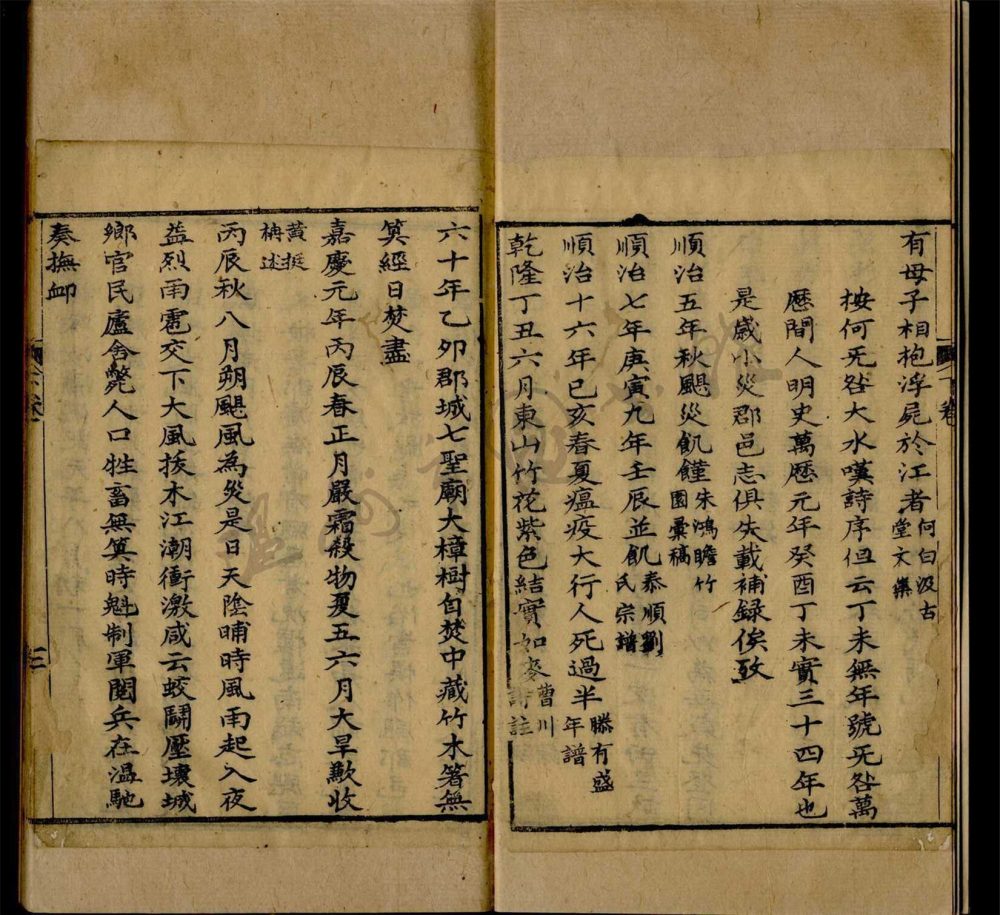 有母子相抱浮屍於江者何白汲古堂文集
按何旡咎大水嘆詩序但云丁未無年號旡咎萬
歷間人明史萬歷元年癸酉丁未實三十四年也
是歲小災郡邑志俱失載補録俟攷
順治五年秋颶災飢饉朱鴻瞻竹園彙稿
順治七年庚寅九年壬辰並飢泰順劉氏宗譜
順治十六年己亥春夏瘟疫大行人死過半滕有盛年譜
乾隆丁丑六月東山竹花紫色結實如麥曹川詩註
六十年乙卯郡城七聖廟大樟樹自焚中藏竹木箸無
筭經日焚盡
嘉慶元年丙辰春正月嚴霜殺物夏五六月大旱歉收
黄挺椭述
丙辰秋八月朔颶風為災是日天陰晡時風雨起入夜
益烈雨雹交下大風拔木江潮衝激咸云蛟鬭壓壞城
鄉官民廬舍斃人口牲畜無筭時魁制軍閱兵在溫馳
奏撫卹